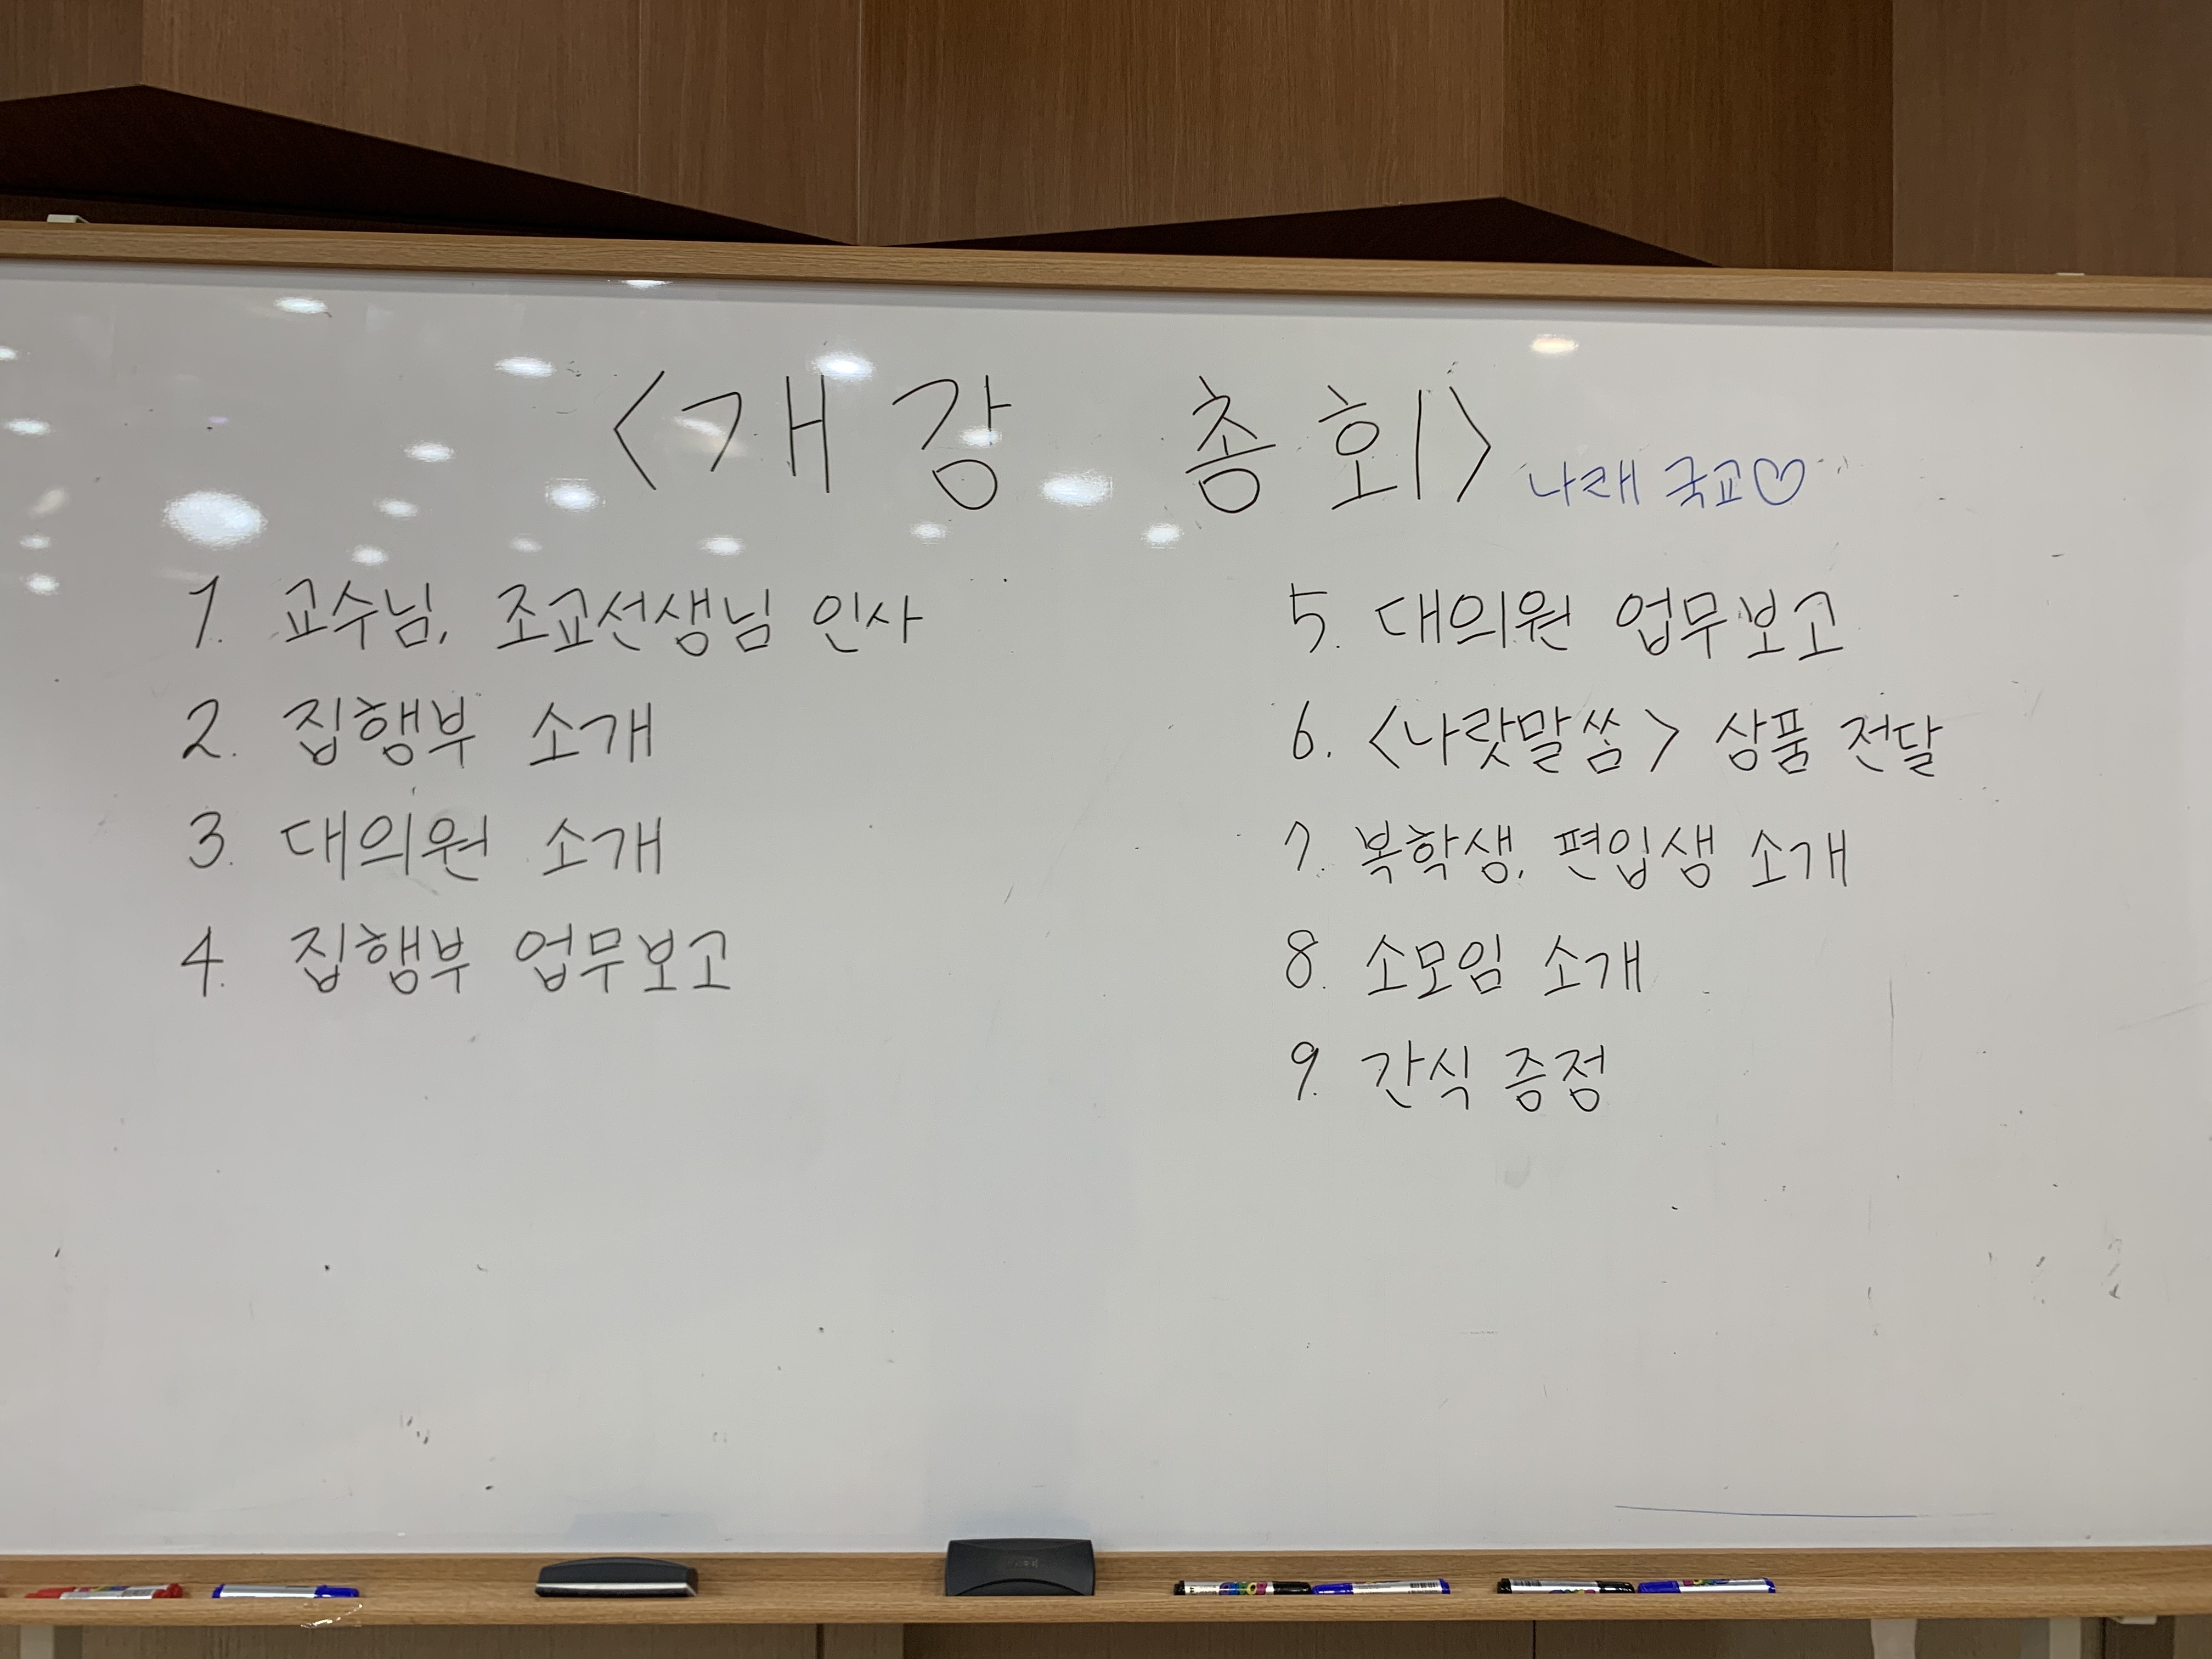 <개강 총회> 나래 국교♡
1. 교수님, 조교선생님 인사
2. 집행부 소개
3. 대의원 소개
4. 집행부 업무보고
5. 대의원 업무보고
6. <나랏말씀> 상품 전달
7. 복학생, 편입생 소개
8. 소모임 소개
9. 간식 증정